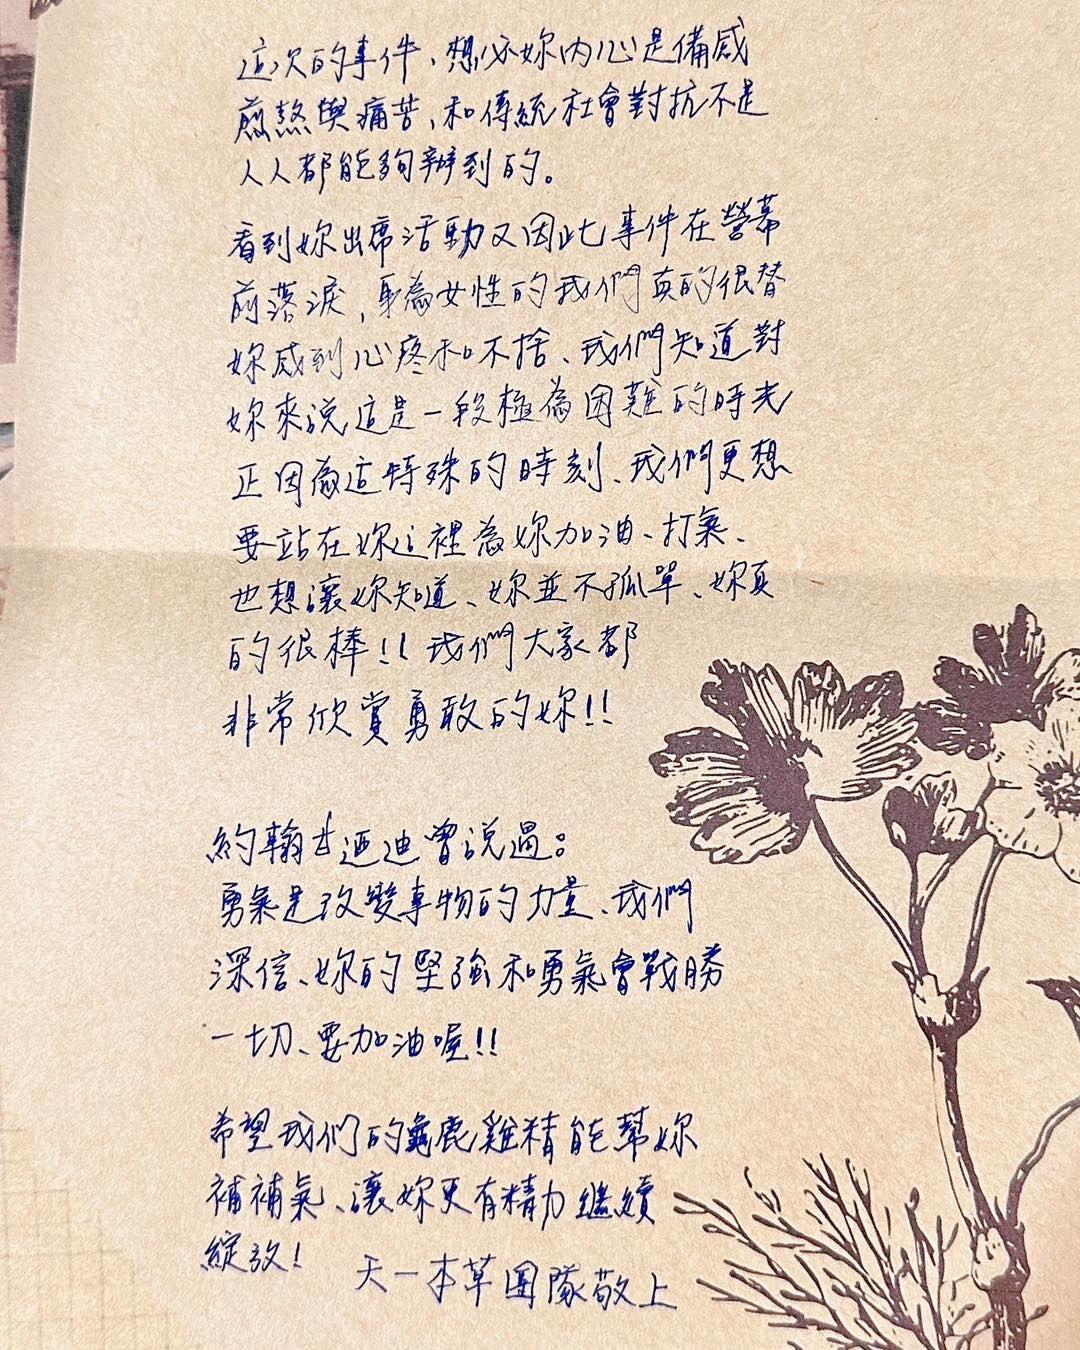 這次的事件、想必妳內心是備感
煎熬與痛苦、和傳統社會對抗不是
人人都能夠辦到的。
看到妳出席活動又因此事件在螢幕
前落淚，身為女性的我們真的很替
妳感到心疼和不捨、我們知道對
妳來說這是一段極為困難的時光
正因為這特殊的時刻、我們更想
要站在妳這裡為妳加油、打氣、
也想讓妳知道、妳並不孤單、妳真
的很棒!! 我們大家都
非常欣賞勇敢的妳!!
約翰甘迺迪曾說過。
勇氣是改變事物的力量、我們
深信、妳的堅強和勇氣會戰勝
一切、要加油喔!!
希望我們的龜鹿雞精能幫妳
補補氣、讓妳更有精力繼續
綻放!
天一本草團隊敬上